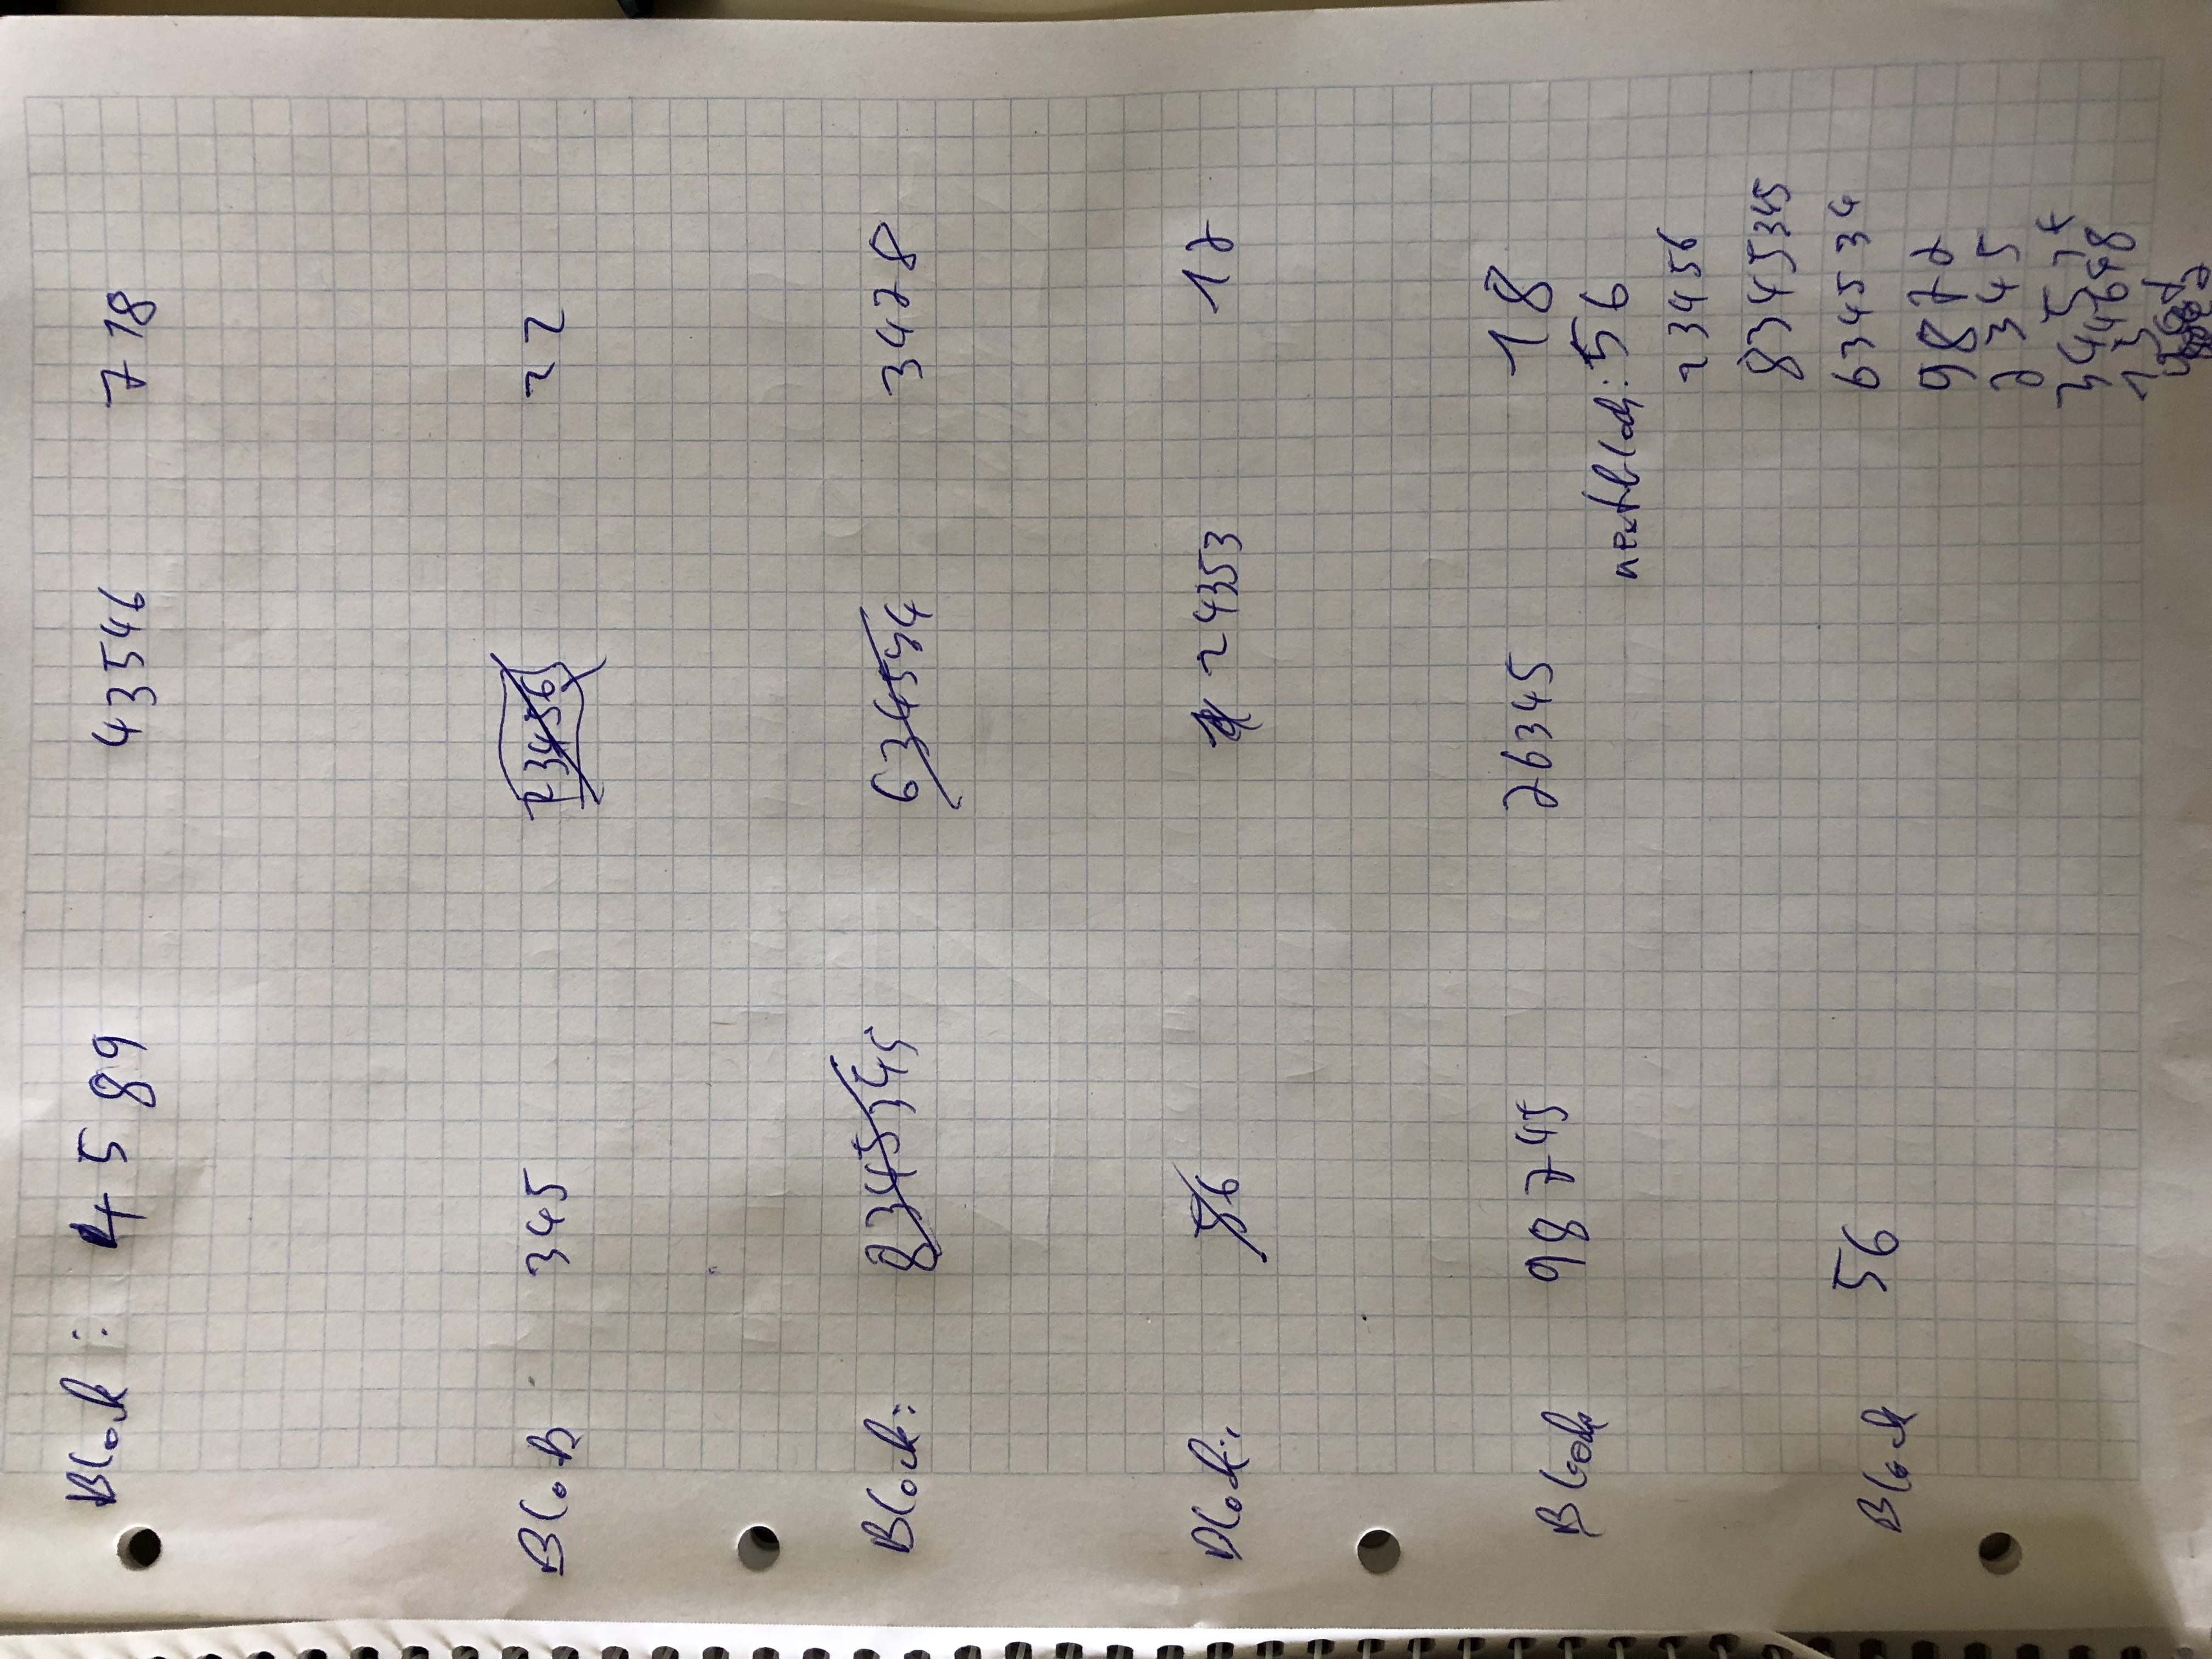 Block: 4589 43546 718
Block 345 23456 22
Block: 8345345 634534 3478
Block: 56 24353 17
Block 98745 26345 18
nextblock: 56
23456
8345345
Block 56 634534
9877
2345